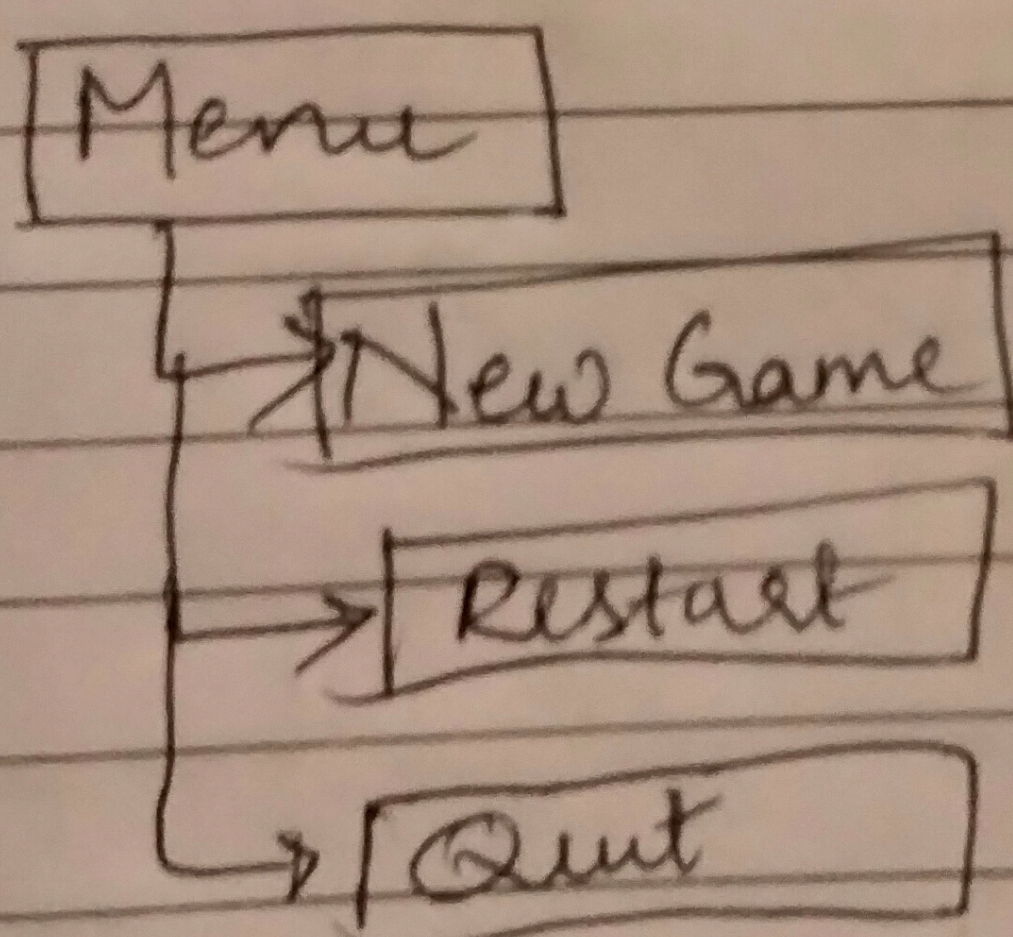 Menu
New Game
Restart
Quit